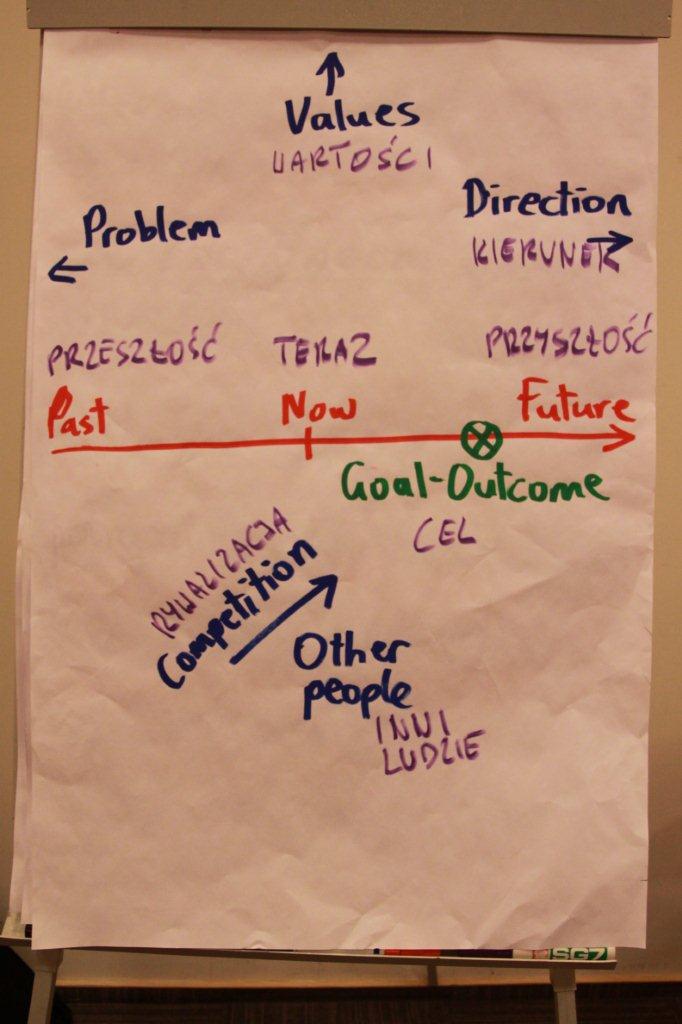 Values
WARTOŚCI
Problem
Direction
KIERUNEK
PRZESZŁOŚĆ TERAZ PRZYSZŁOŚĆ
Past Now Future
Goal-Outcome
CEL
RYWALIZACJA
Competition
Other
people
INNI
LUDZIE